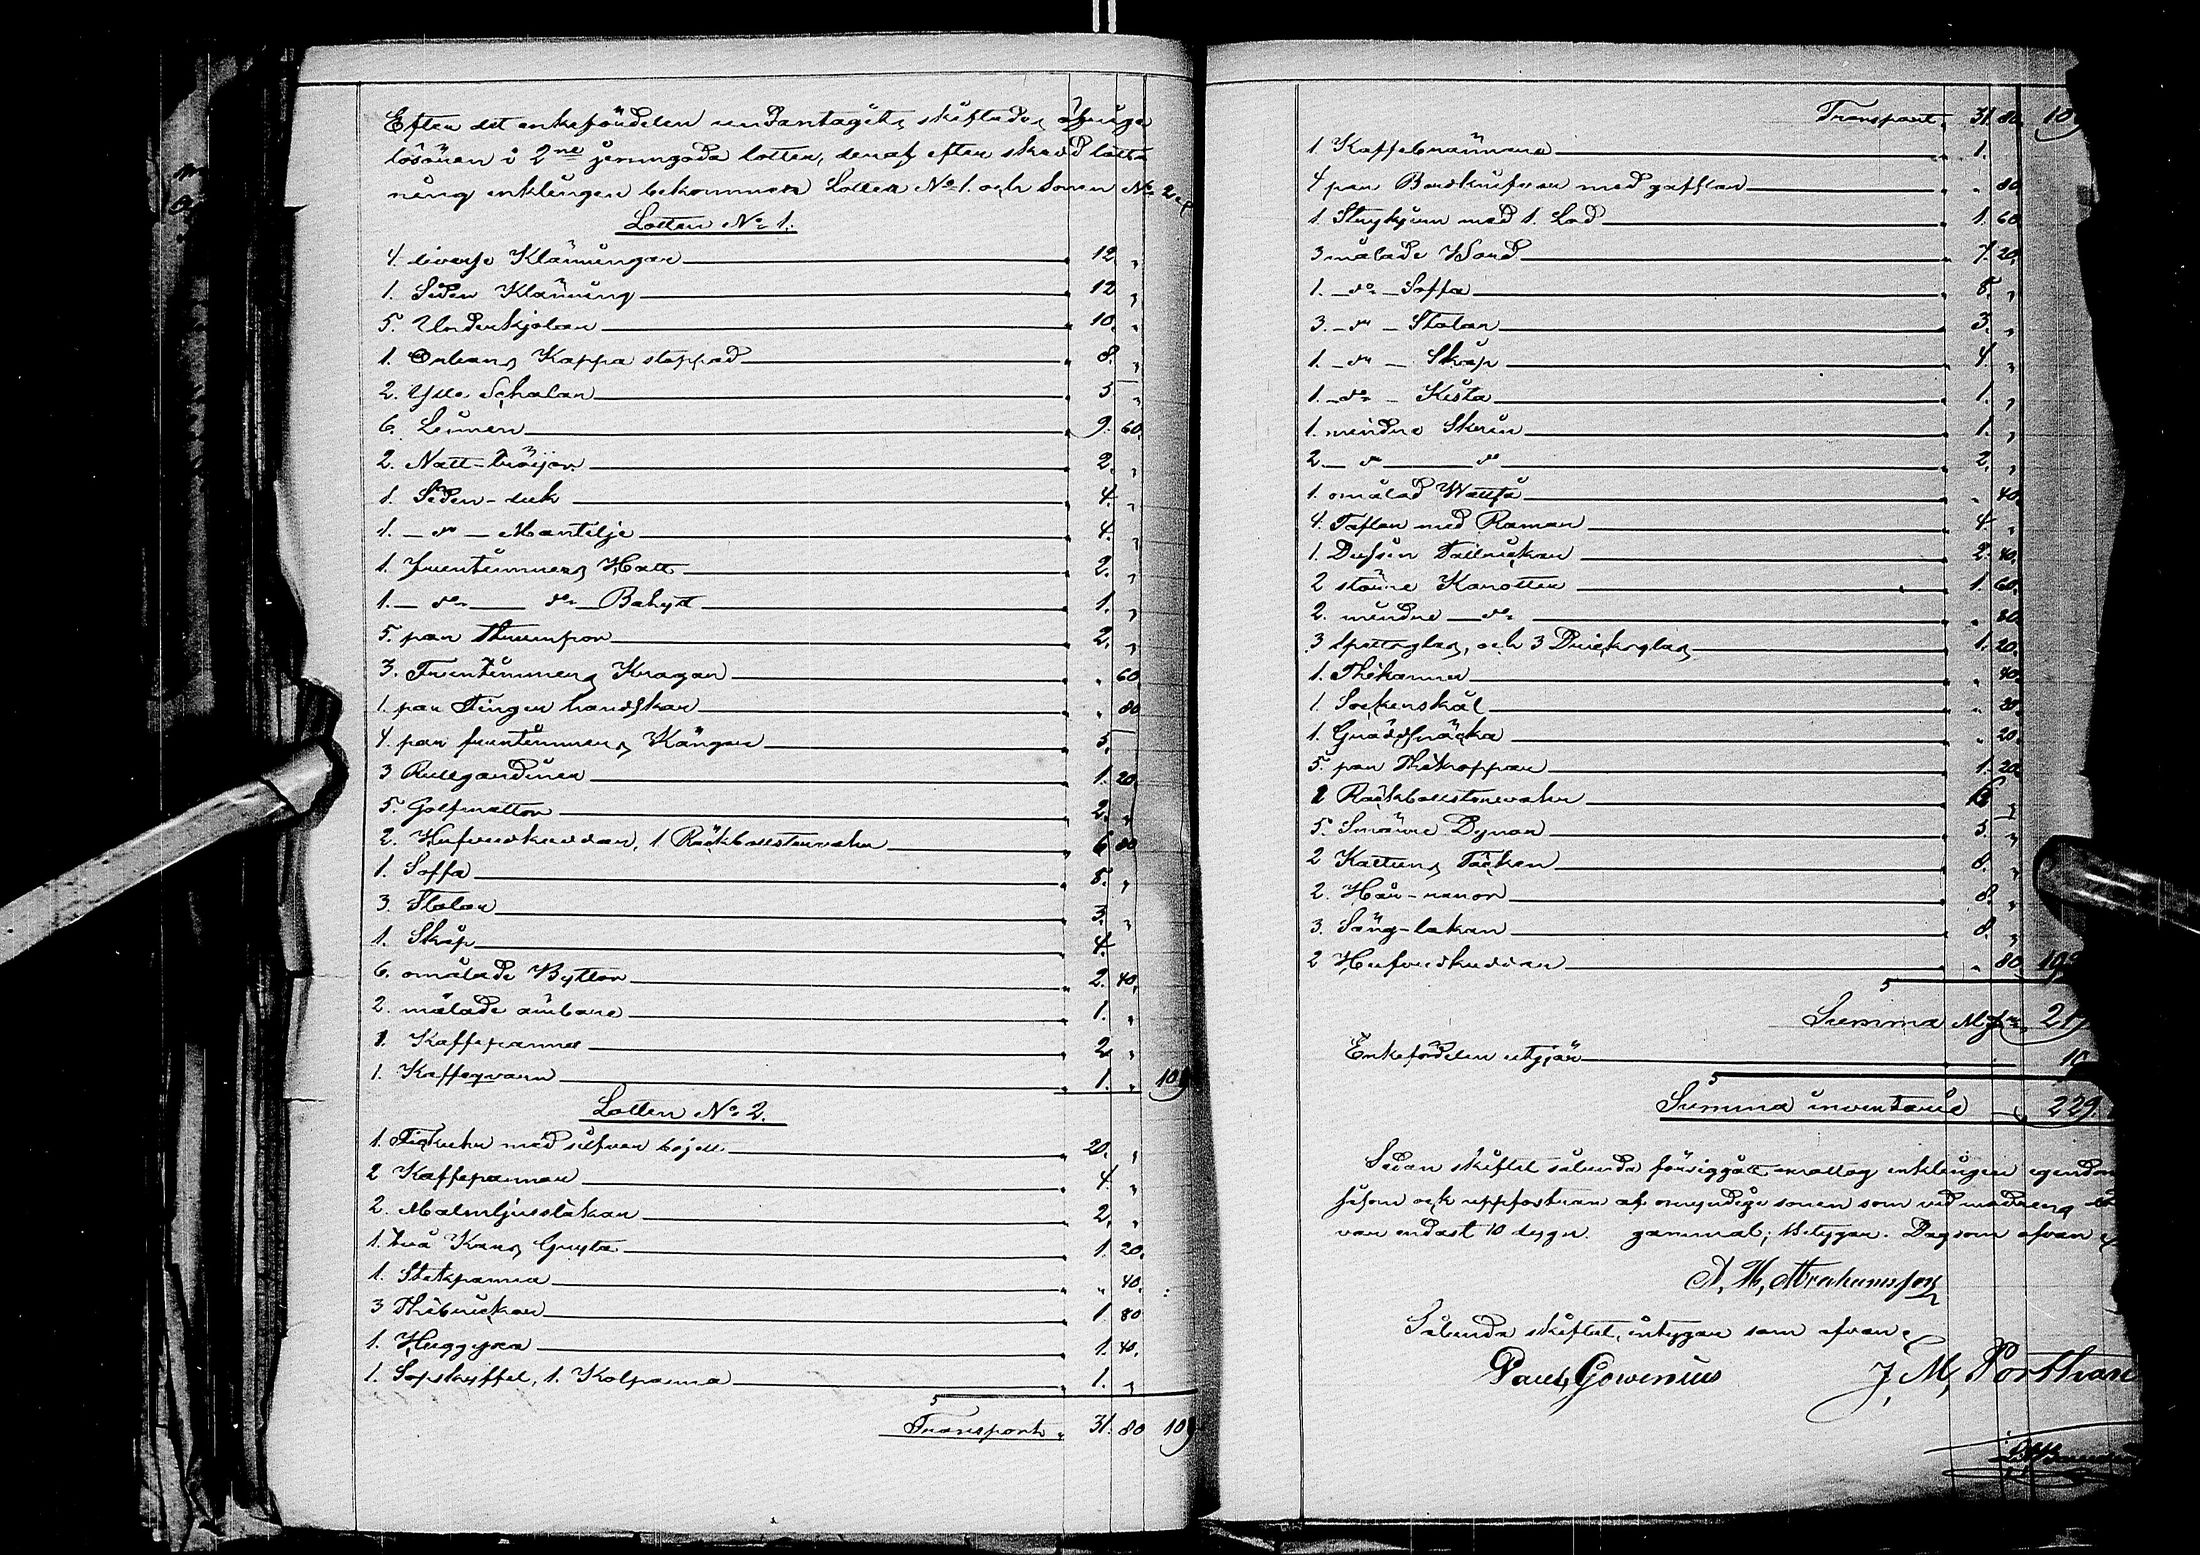 Efter det enkefördelen undantagits, skiftades öfriga
lösören i 2ne jemngoda lotter, deraf efter skedd lott-
ning enklingen bekommer Lotten No 1. och Sonen No 2
Lotten No 1.
4. diverse Klänningar 12 "
1. Siden Klänning 12 "
5. Underkjolar 10. "
1. Orleans Kappa stoppad 8. "
2. Ylle Schalar 5 "
6. Linnen 9. 60.
2. Natt-tröijor 2. "
1. Siden-duk 4. "
1. - do - Mantilje 4. "
1. fruentimmers Hatt 2. "
1. - do - do - Bahytt 1. "
5. par Strumpor 2. "
3. Fruentimmers Kragar " 60.
1. par Finger handskar " 80
4. par fruentimmers Kängor 5.
3 Rullgardiner 1. 20.
5. Golfmattor 2. "
2. Hufvudkuddar, 1 Räckbolstervahr 6 80
1. Soffa 8. "
3. Stolar 3. "
1. Skåp 4.
6. omålade Byttor 2. 40.
2. målade ämbare 1. "
1. Kaffepanna 2 "
1. Kaffeqvarn 1. " 109
Lotten No 2.
1. Fickuhr med silfver bojett 20. "
2 Kaffepannor 4. "
2. Malmljusstakar 2. "
1. två Kans Gryta 1. 20.
1. Stekpanna " 40.
3 Thebrickor 1 80
1. Huggyxa 1. 40.
1. Sopskyffel, 1. Kolpanna 1. "
Transport 31. 80 109
Transport 31. 80. 109
1 Kaffebrännare 1.
4 par Bordknifvar med gafflar " 80
1. Strykjern med 1. Lod 1. 60
3 målade Bord 7. 20.
1. - do - Soffa 8. "
3. - do - Stolar 3. "
1. - do - Skåp 4. "
1. - do - Kista 1. "
1. mindre Skrin 1. "
2 - do - do 2. "
1. omålad " 40.
4. Taflor med Ramar 4. "
1. Dussin Tallrickar 2. 40.
2 större Karotter 1. 60.
2. mindre - do - " 80.
3 spetsglas, och 3 Dricksglas 1. 20.
1. Thekanna " 40.
1. Sockerskål " 20.
1. Gräddsnäcka " 20.
5. par Thekoppar 1. 20
1 Räckbolstervahr 6 "
5. Smärre Dynor 5. "
2 Kattuns Täcken 8. "
2. Hår-
3. Säng-lakan 8. "
2 Hufvudkuddar " 80 109
Summa Mk 217
Enkefördelen utgjör 10
Summa inventarie 229
Sedan skiftet sålunda försiggått emottog enklingen egendom
såsom ock uppfostran af omyndige sonen som vid modrens död
var endast 10 dygn gammal; betygar. Dag som ofvan
A. W. Abrahamsson
Sålunda skiftat, intygar som ofvan
Paul Gowenius J. M. Porthan